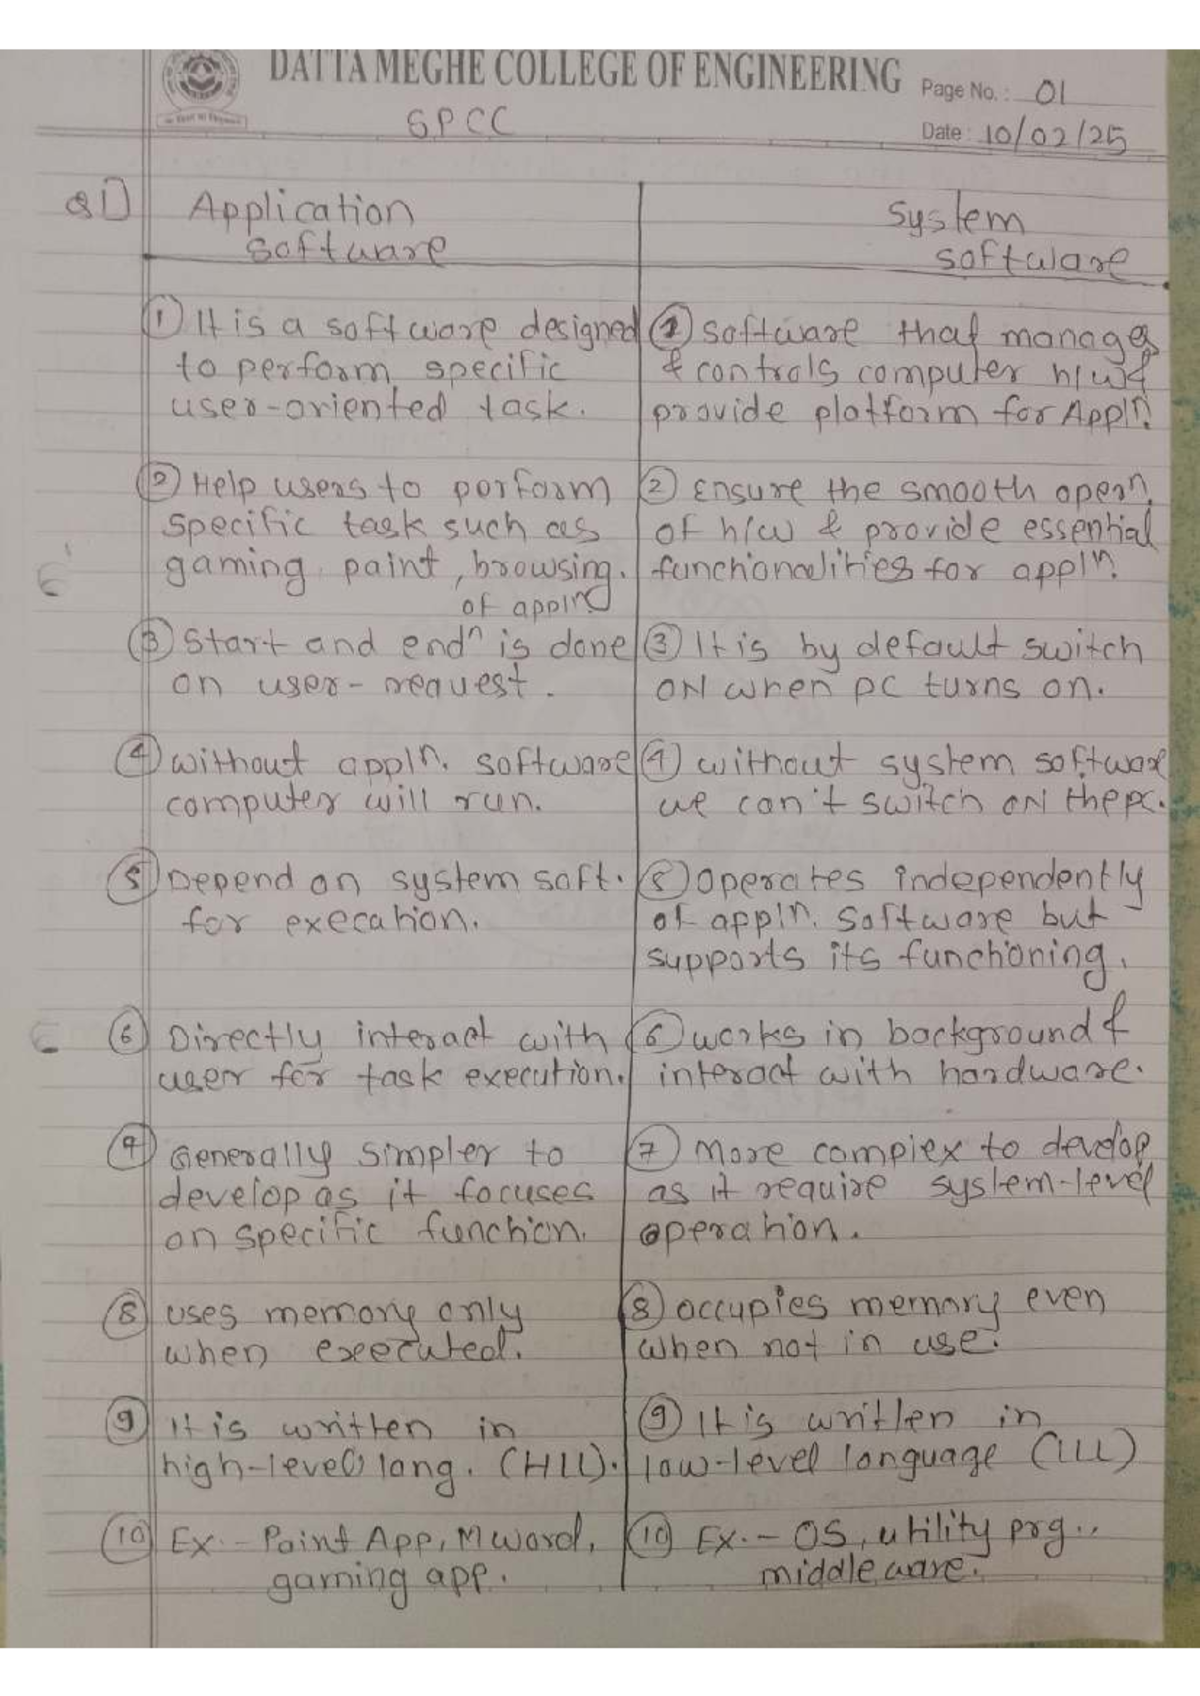 DATTA MEGHE COLLEGE OF ENGINEERING
Page No.: 01
SPCC
Date: 10/02/25
Q1]
Application
software
① It is a software designed
to perform specific
user-oriented task.
② Help users to perform
specific task such as
gaming, paint, browsing.
of appln
③ Start and endn is done
on user-request.
④ without appln. software
computer will run.
⑤ Depend on system soft.
for execution.
⑥ Directly interact with
user for task execution.
⑦ Generally simpler to
develop as it focuses
on specific function.
⑧ uses memory only
when executed.
⑨ It is written in
high-level lang. (HLL).
⑩ Ex.- Paint App, M word,
gaming app.
System
software
① software that manages
& controls computer h/w &
provide platform for Appln.
② Ensure the smooth opern.
of h/w & provide essential
functionalities for appln.
③ It is by default switch
ON when PC turns on.
④ without system software
we can't switch ON the pc.
⑤ Operates independently
of appln. software but
supports its functioning.
⑥ works in background &
interact with hardware.
⑦ More complex to develop
as it require system-level
operation.
⑧ occupies memory even
when not in use.
⑨ It is written in
low-level language (LLL)
⑩ Ex.- OS, utility prg..
middleware.